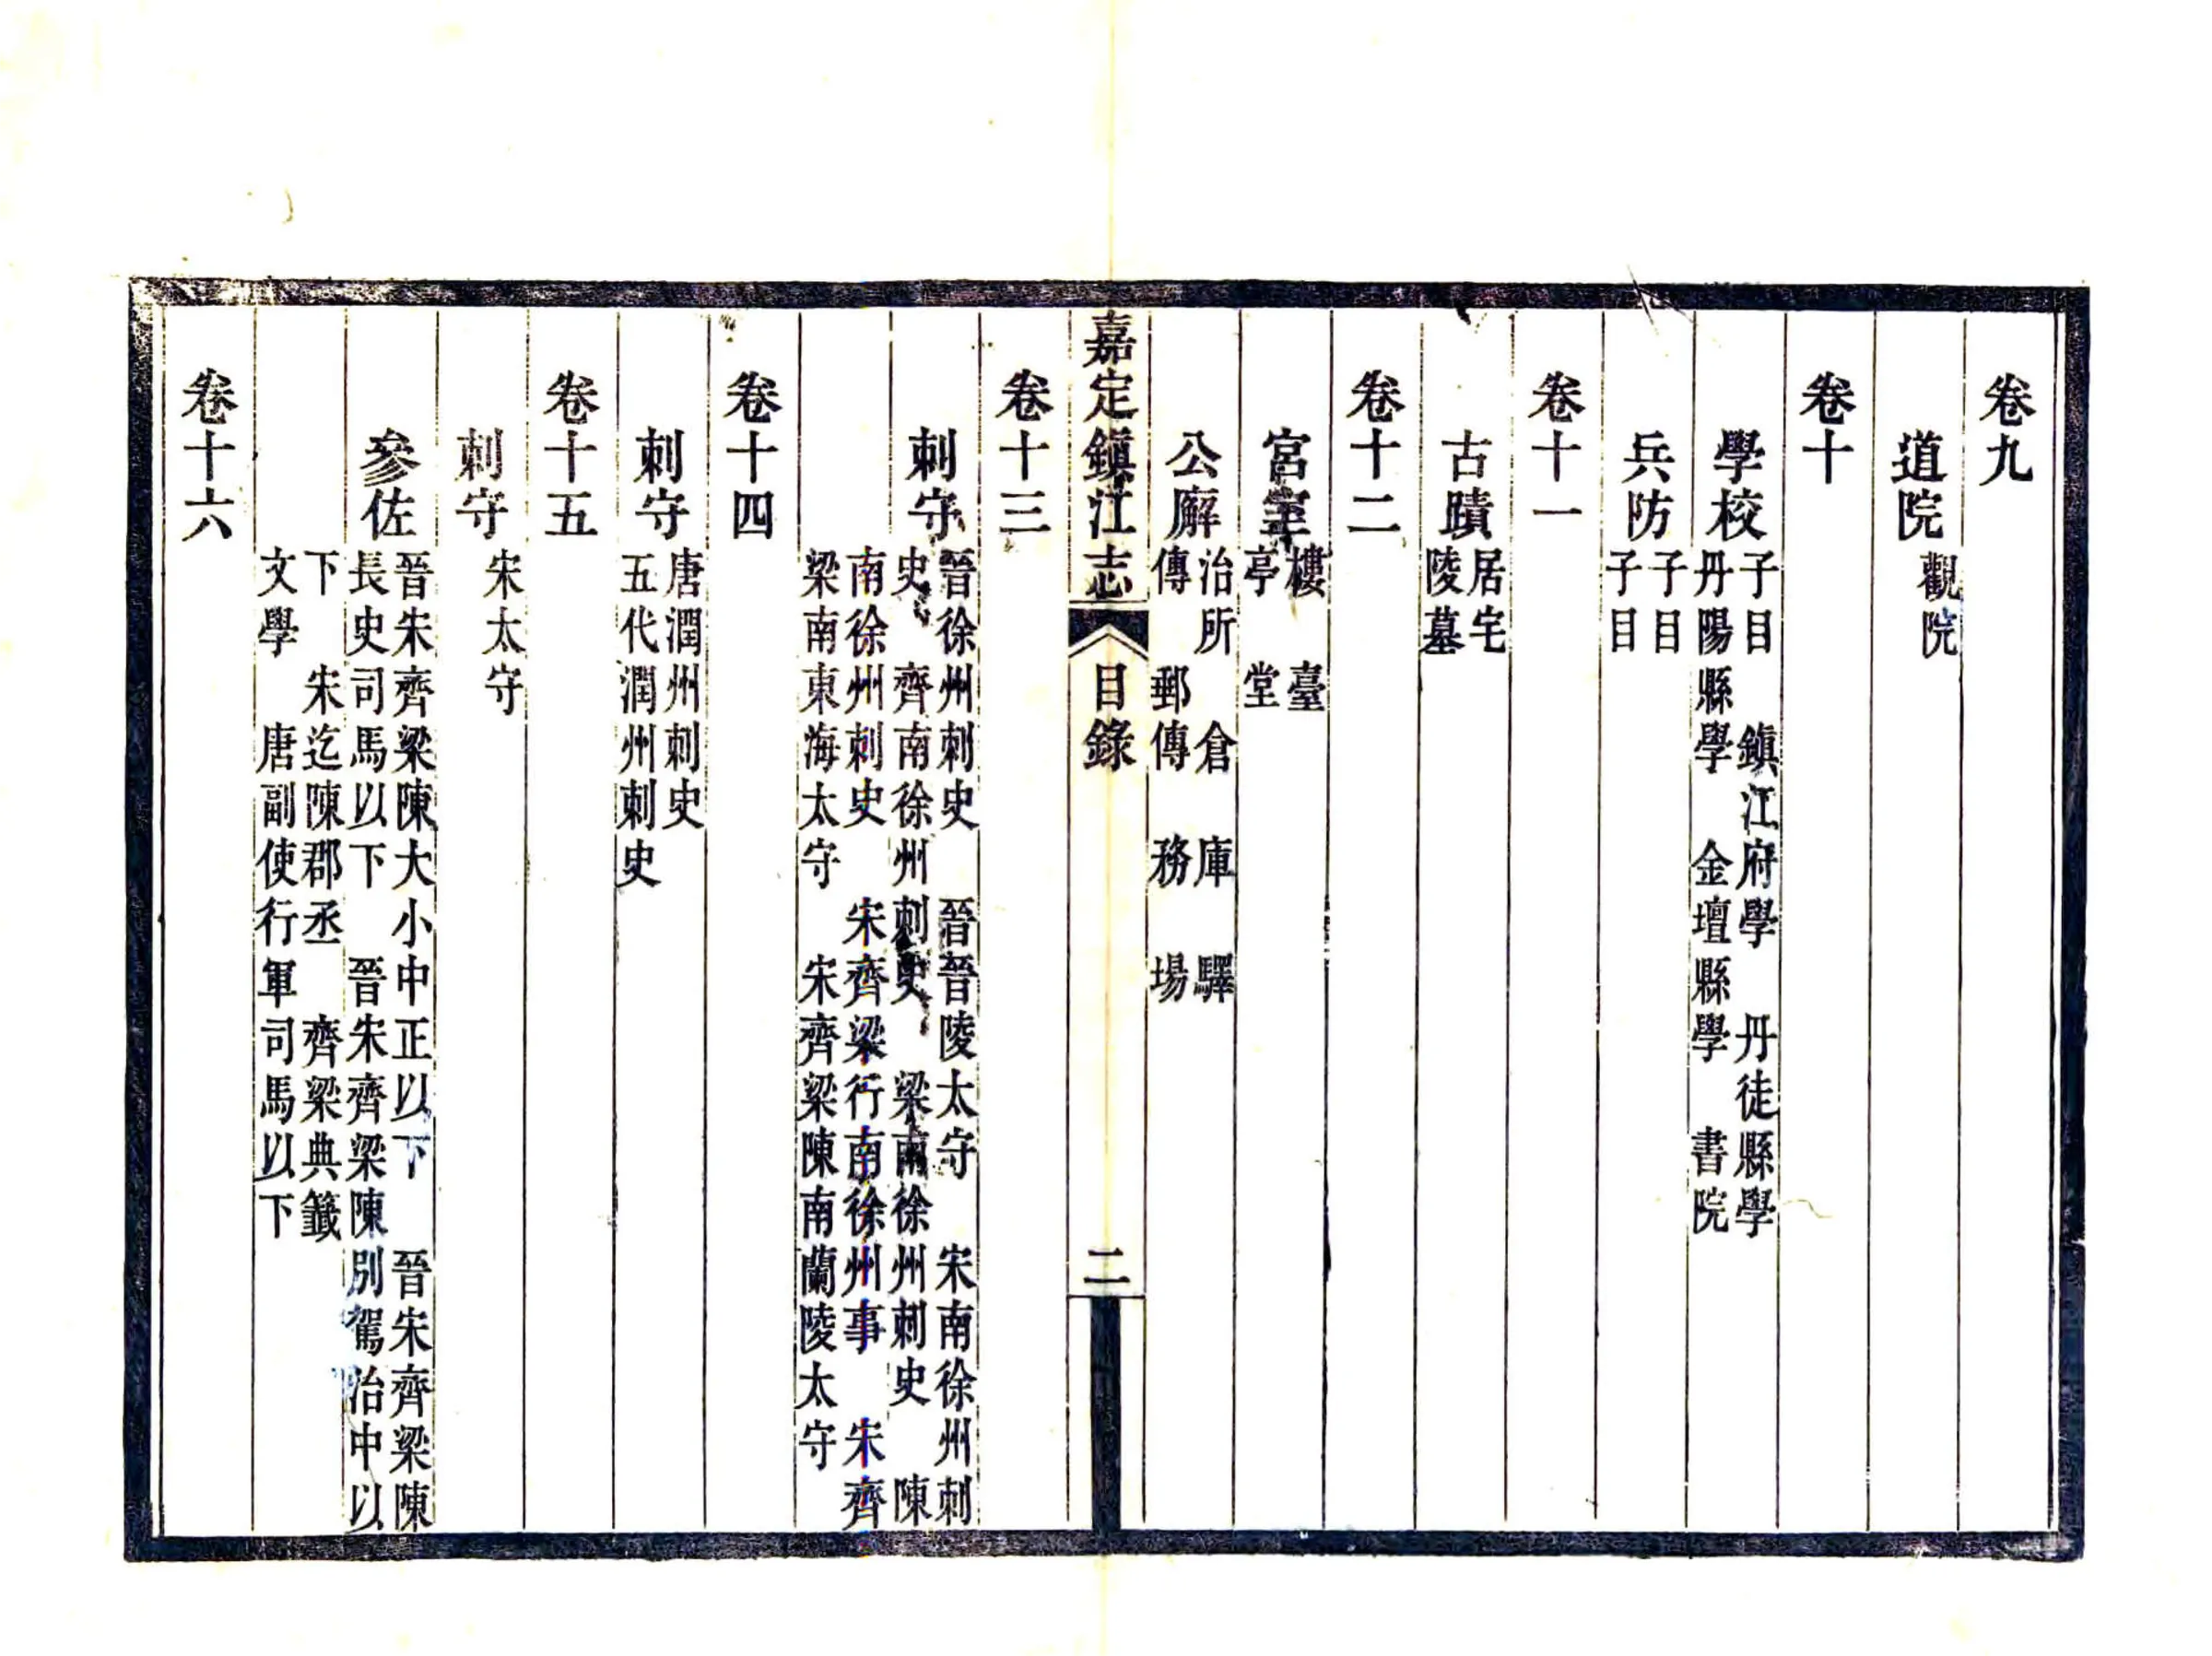 卷九
道院 觀院
卷十
學校 子目 鎮江府學 丹徒縣學
丹陽縣學 金壇縣學 書院
兵防 子目
子目
卷十一
古蹟 居宅
陵墓
卷十二
宮室 樓 臺
亭 堂
公廨 治所 倉 庫 驛
傳 郵傳 務 場
嘉定鎮江志 目錄 二
卷十三
刺守 晉徐州刺史 晉晉陵太守 宋南徐州刺
史 齊南徐州刺史 梁南徐州刺史 陳
南徐州刺史 宋齊梁行南徐州事 宋齊
梁南東海太守 宋齊梁陳南蘭陵太守
卷十四
刺守 唐潤州刺史
五代潤州刺史
卷十五
刺守 宋太守
參佐 晉宋齊梁陳大小中正以下 晉宋齊梁陳
長史司馬以下 晉宋齊梁陳別駕治中以
下 宋迄陳郡丞 齊梁典籤
文學 唐副使行軍司馬以下
卷十六